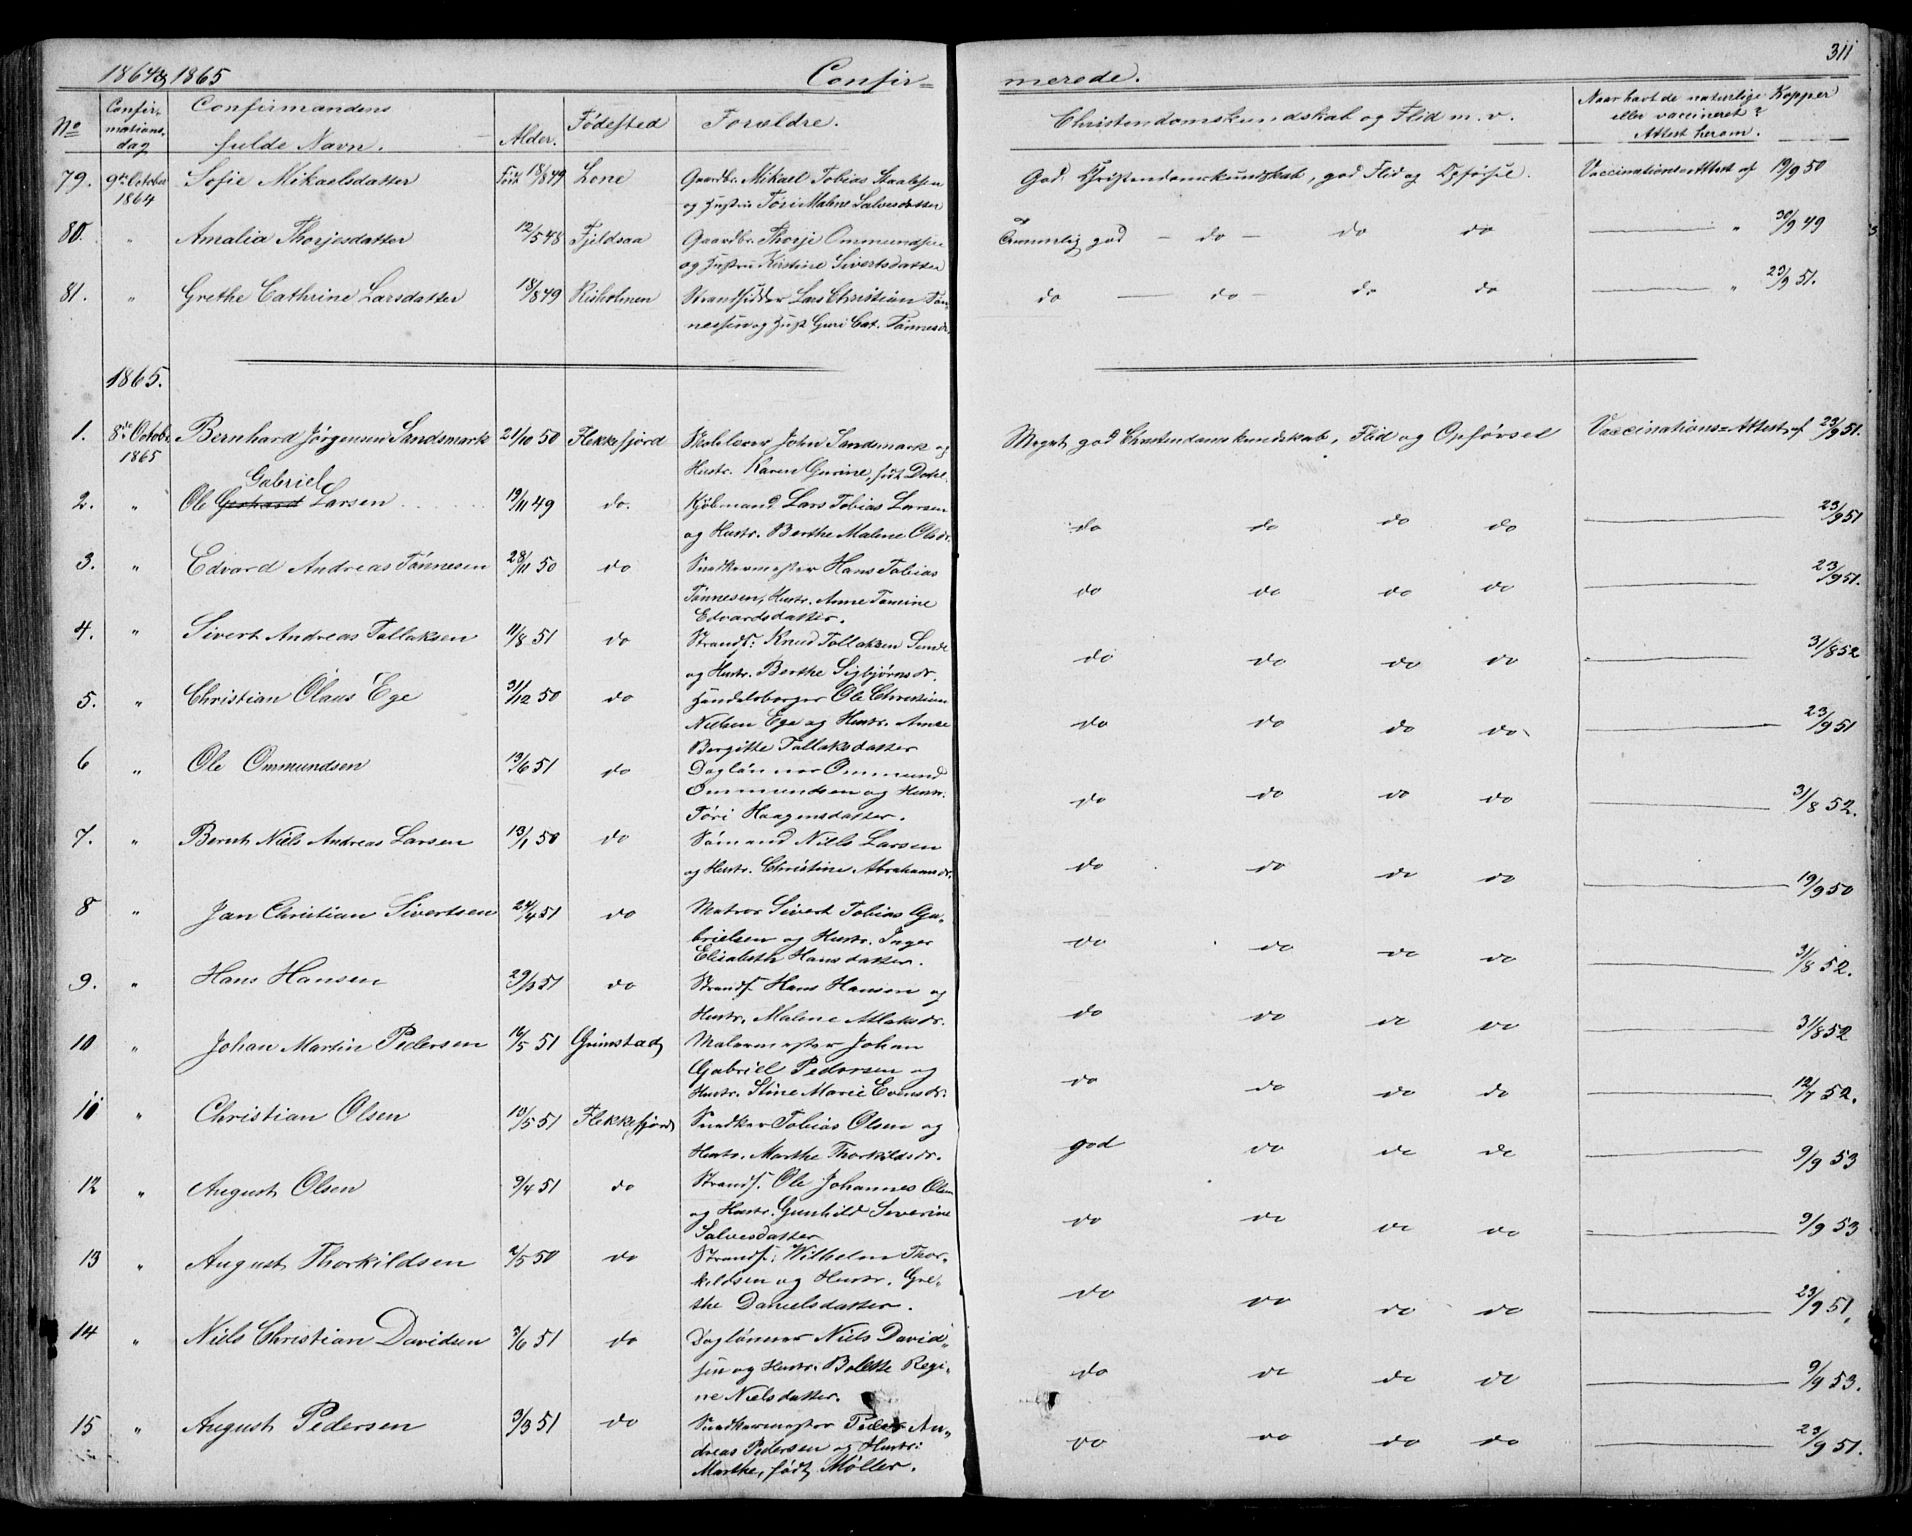 311
1864 & 1865 Confirmerede.
No Confirmations dag Confirmandens fulde Navn. Alder. Fødested Forældre. Christendomskundskab og Flid m. v. Naar havt de naturlige Kopper eller vaccineret? Attest herom.
79. 9de October 1864 Sofie Mikaelsdatter Født 18/8 49 Lone Gaardbr. Mikael Tobias Staalesen God Christendomskundskab, god Flid og Opførsel. Vaccinations-Attest af 19/9 50
og Hustru Tøri Malene Salvesdatter
80. " Amalia Thorjesdatter 12/5 48 Fjeldsaa Gaardbr. Thorje Ommundsen Temmelig god - do - do do " 30/9 49
og Hustru Kirstine Sivertsdatter
81. " Grethe Cathrine Larsdatter 18/8 49 Risholmen Strandsidder Lars Christian Tøn- do - do - do do " 23/9 51.
nessen og Hust Guri Cat. Tønnesdr.
1865.
1. 8de Octobr 1865 Bernhard Jørgensen Sandsmark 21/10 50 Flekkefjord Skolelærer John Sandsmark og Meget god Christendomskundskab, Flid og Opførsel Vaccinations-Attest af 23/9 51.
Hustr. Karen Gurine, født Dedel.
Gabriel
2. " Ole Gerhard Larsen 19/11 49 do. Kjøbmand Lars Tobias Larsen do do do do 23/9 51
og Hustr. Berthe Malene Olsdr.
3. " Edvard Andreas Tønnesen 28/11 50 do Snedkermester Hans Tobias do do do do 23/9 51.
Tønnesen, Hustr. Anne Tomine
Edvardsdatter.
4. " Sivert Andreas Tollaksen 11/8 51 do Strands: Knud Tollaksen Sunde do do do do 31/8 52
og Hustr. Berthe Sigbjørnsdr.
5. " Christian Olaus Ege 31/12 50 do Handelsborger Ole Christian do do do do 23/9 51
Nielsen Ege og Hustr. Anne
Bergitte Tollaksdatter
6 " Ole Ommundsen 13/6 51 do Dagløner Ommund do do do do 31/8 52.
Ommundsen og Hustr.
Tøri Haagensdatter.
7. " Bernt Niels Andreas Larsen 13/1 50 do Sømand Niels Larsen do do do do 19/9 50
og Hustr. Christine Abrahamsdr.
8 " Jan Christian Sivertsen 24/4 51 do Matros Sivert Tobias Ga- do do do do 31/8 52.
brielsen og Hustr. Inger
Elisabeth Hansdatter.
9. " Hans Hansen 29/3 51 do Strands. Hans Hansen og do do do do 31/8 52
Hustr. Malene Atlaksdr.
10 " Johan Martin Pedersen 16/5 51 Grimstad Malermester Johan do do do do 12/7 52.
Gabriel Pedersen og
Hustr. Stine Marie Evensdr.
11 " Christian Olsen 10/5 51 Flekkefjord Snedker Tobias Olsen og god do do do 9/9 53
Hustr. Marthe Thorkildsdr.
12 " August Olsen 9/4 51 do Strands. Ole Johannes Olsen do do do do 9/9 53
og Hustr. Gunhild Severine
Salvesdatter
13 " August Thorkildsen 2/5 50 do Strands: Wilhelm Thor- do do do do 23/9 51.
kildsen og Hustr. Gre-
the Danielsdatter.
14 " Niels Christian Davidsen 3/6 51 do Dagløner Niels David- do do do do 9/9 53.
sen og Hustr. Bolette Regi-
ne Nielsdatter.
15 " August Pedersen 3/3 51 do Snedkermester Peder An- do do do do 23/9 51.
dreas Pedersen og Hustr:
Marthe, født Møller.